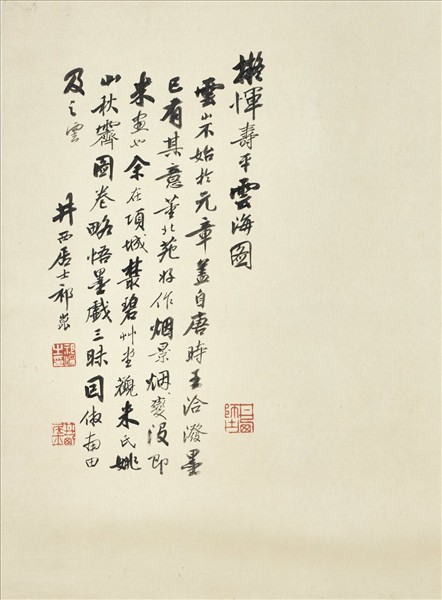 擬惲壽平雲海圖
雲山不始於元章蓋自唐時王洽潑墨
已有其意董北苑好作烟景烟變沒即
米畫也余在項城叢碧艸堂觀米氏姚
山秋霽圖卷略悟墨戲三昧囙倣南田
及之雲
井西居士祁崑